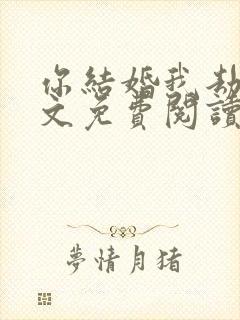 你結婚我劫
文免費閱讀
夢情月豬